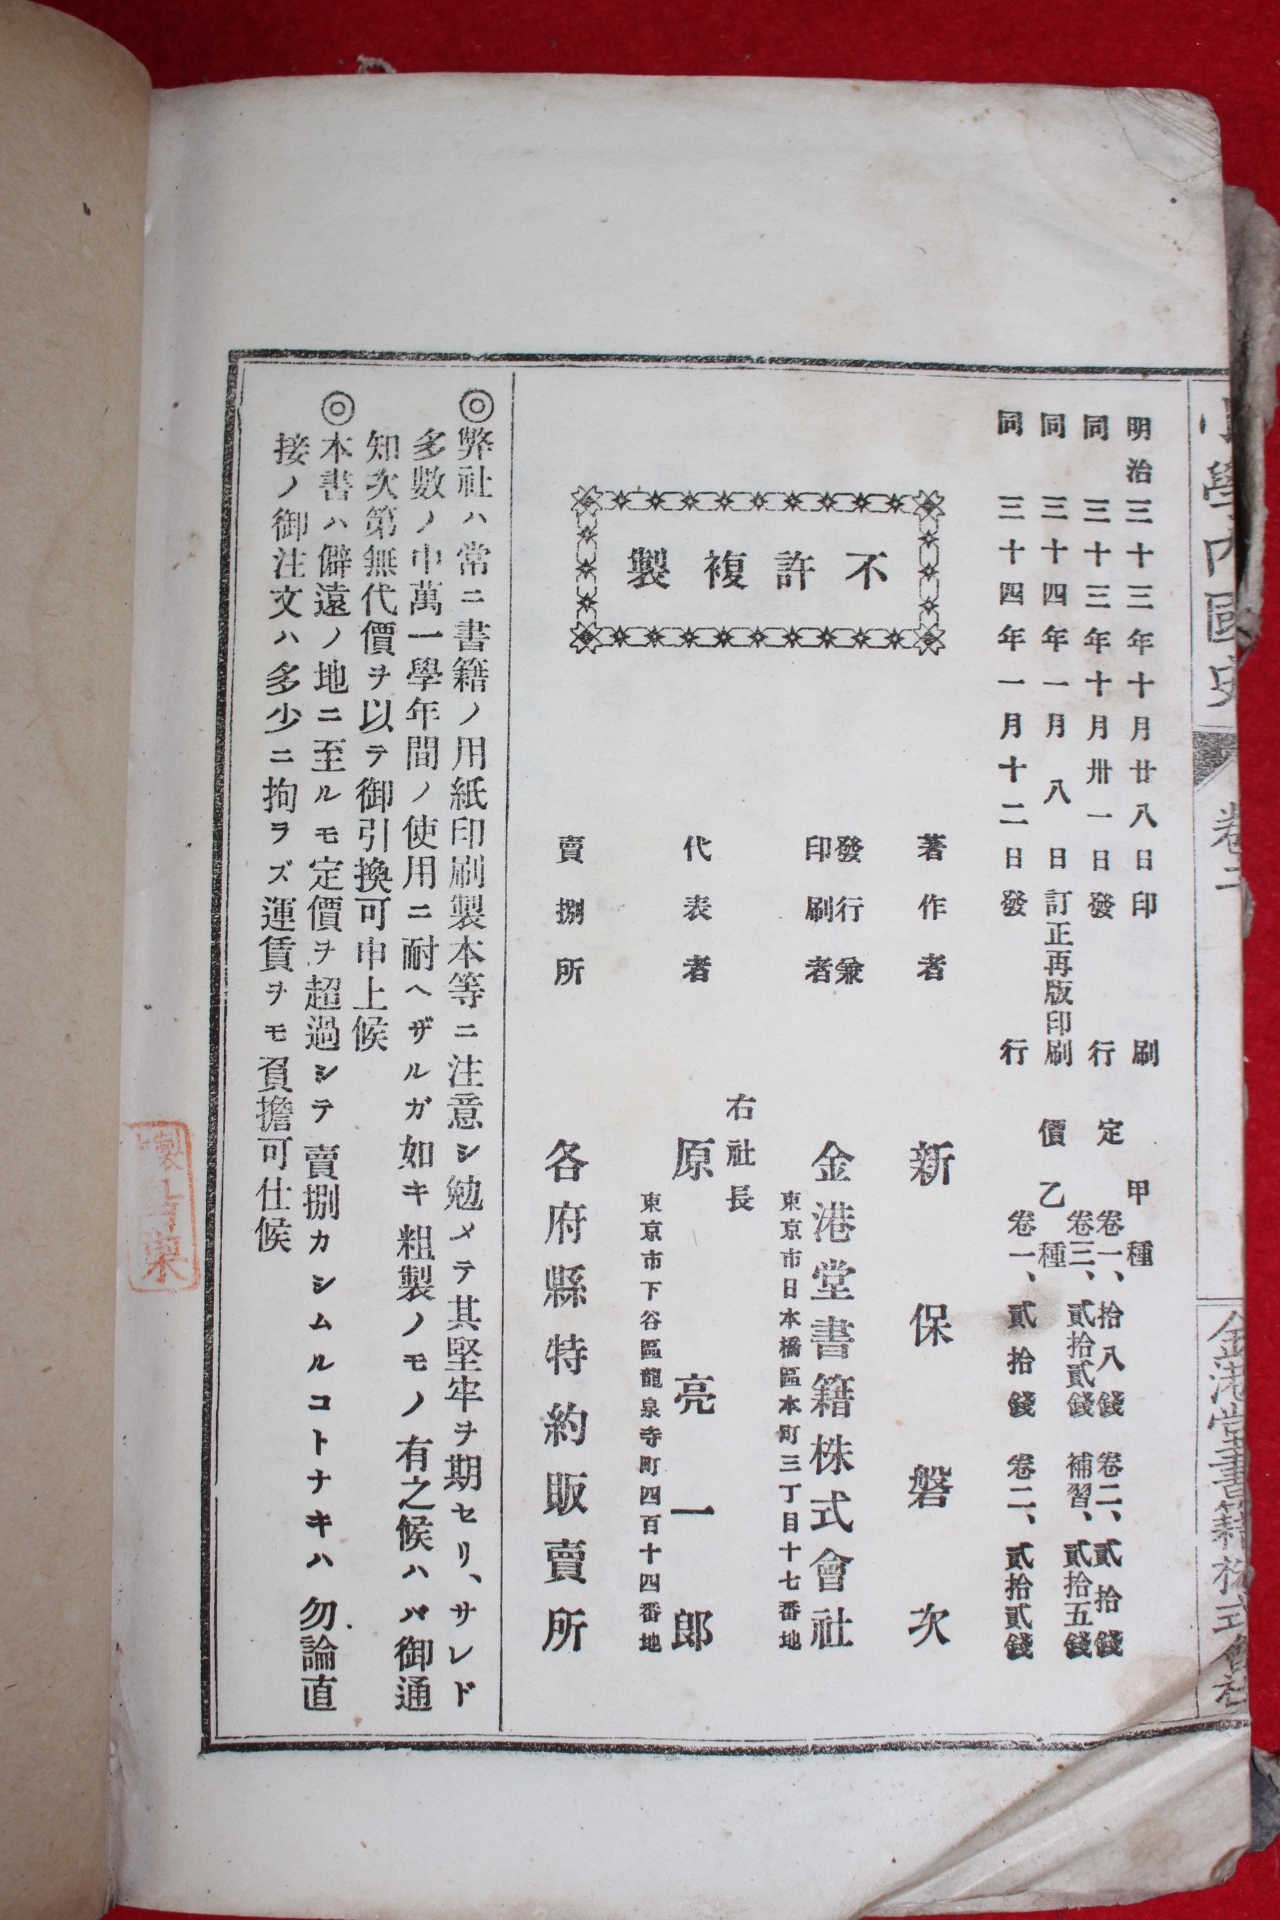 小學內國史
卷二
金港堂書籍株式會社
明治三十三年十月廿八日印刷
同三十三年十月卅一日發行
同三十四年一月八日訂正再版印刷
同三十四年一月十二日發行
定價
甲種
卷一、拾八錢 卷二、貳拾錢
卷三、貳拾貳錢 補習、貳拾五錢
乙種
卷一、貳拾錢 卷二、貳拾貳錢
不許複製
著作者 新保磐次
發行兼印刷者 金港堂書籍株式會社
東京市日本橋區本町三丁目十七番地
右社長
代表者 原亮一郎
東京市下谷區龍泉寺町四百十四番地
賣捌所 各府縣特約販賣所
◎弊社ハ常ニ書籍ノ用紙印刷製本等ニ注意シ勉メテ其堅牢ヲ期セリ、サレド
多數ノ中萬一學年間ノ使用ニ耐ヘザルガ如キ粗製ノモノ有之候ハバ御通
知次第無代價ヲ以テ御引換可申上候
◎本書ハ僻遠ノ地ニ至ルモ定價ヲ超過シテ賣捌カシムルコトナキハ勿論直
接ノ御注文ハ多少ニ拘ラズ運賃ヲモ負擔可仕候